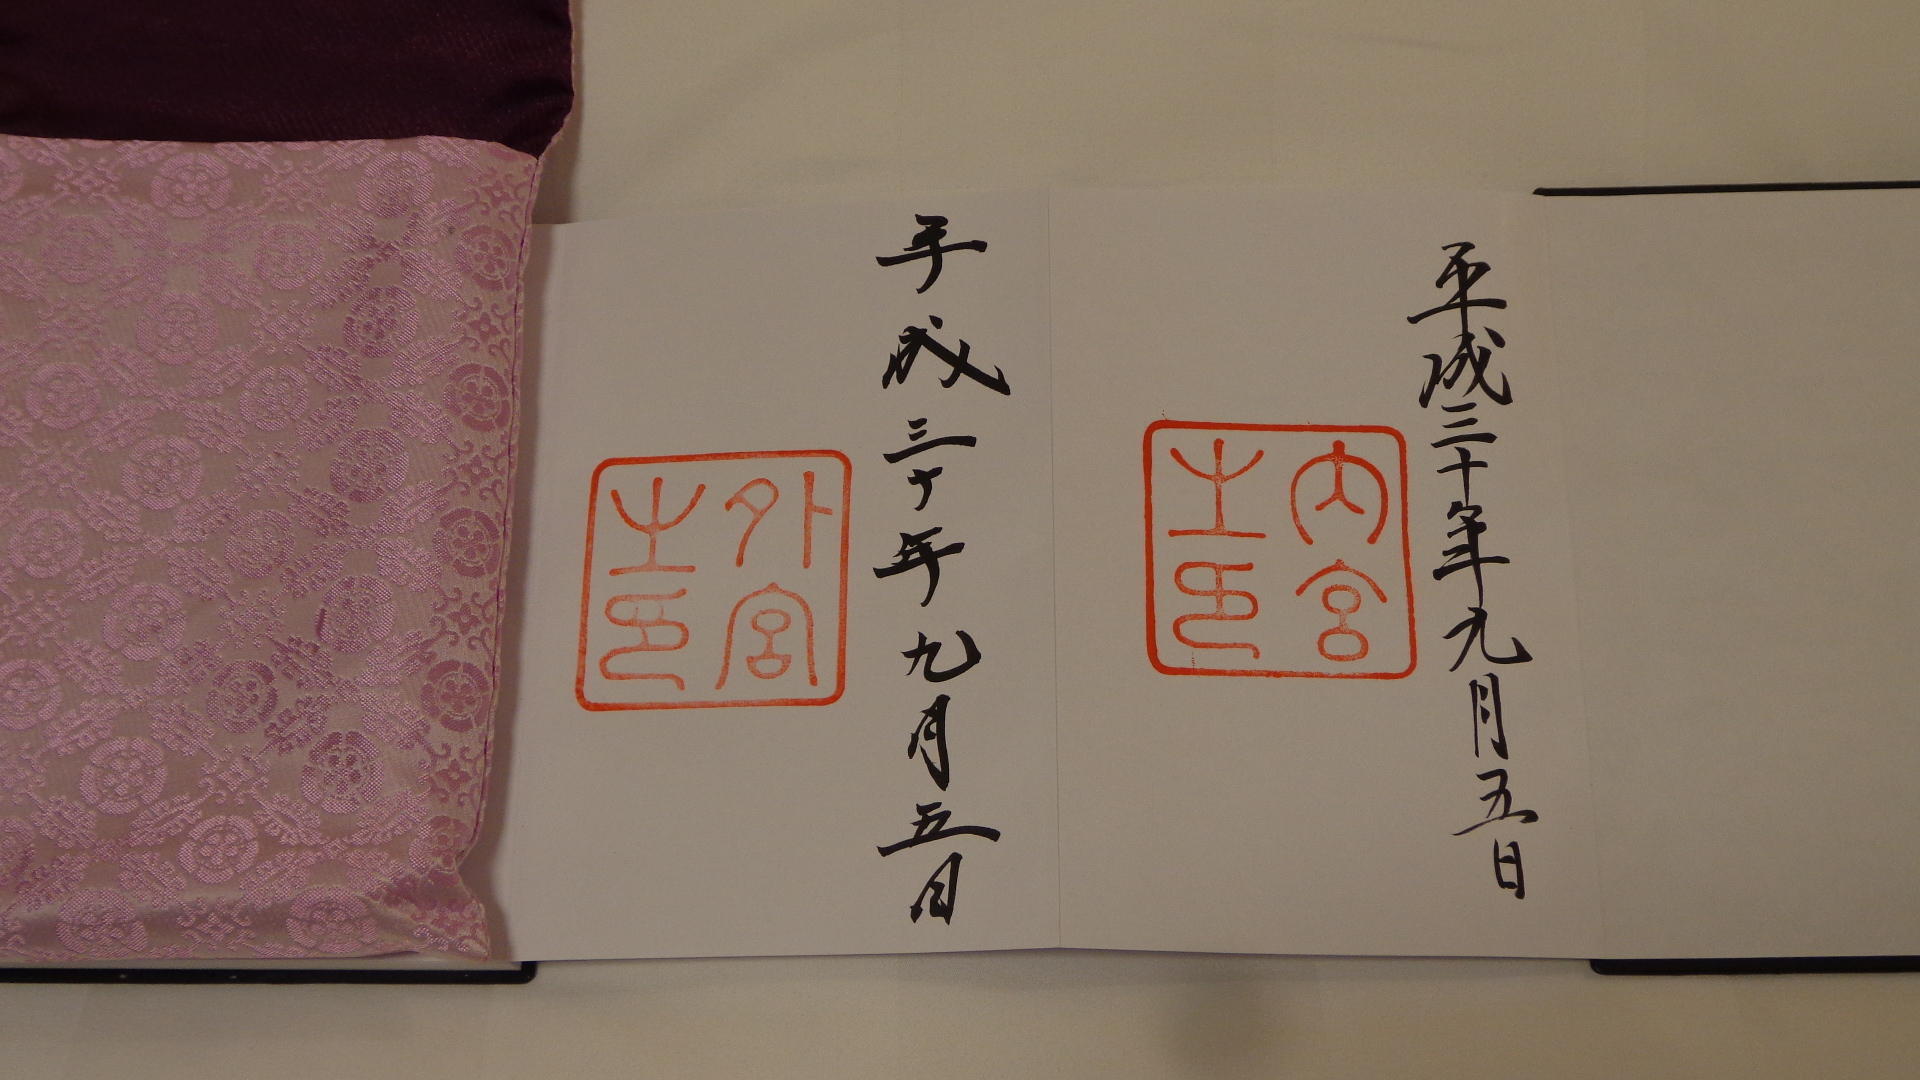 平成三十年九月五日
内宮
之印
平成三十年九月五日
外宮
之印